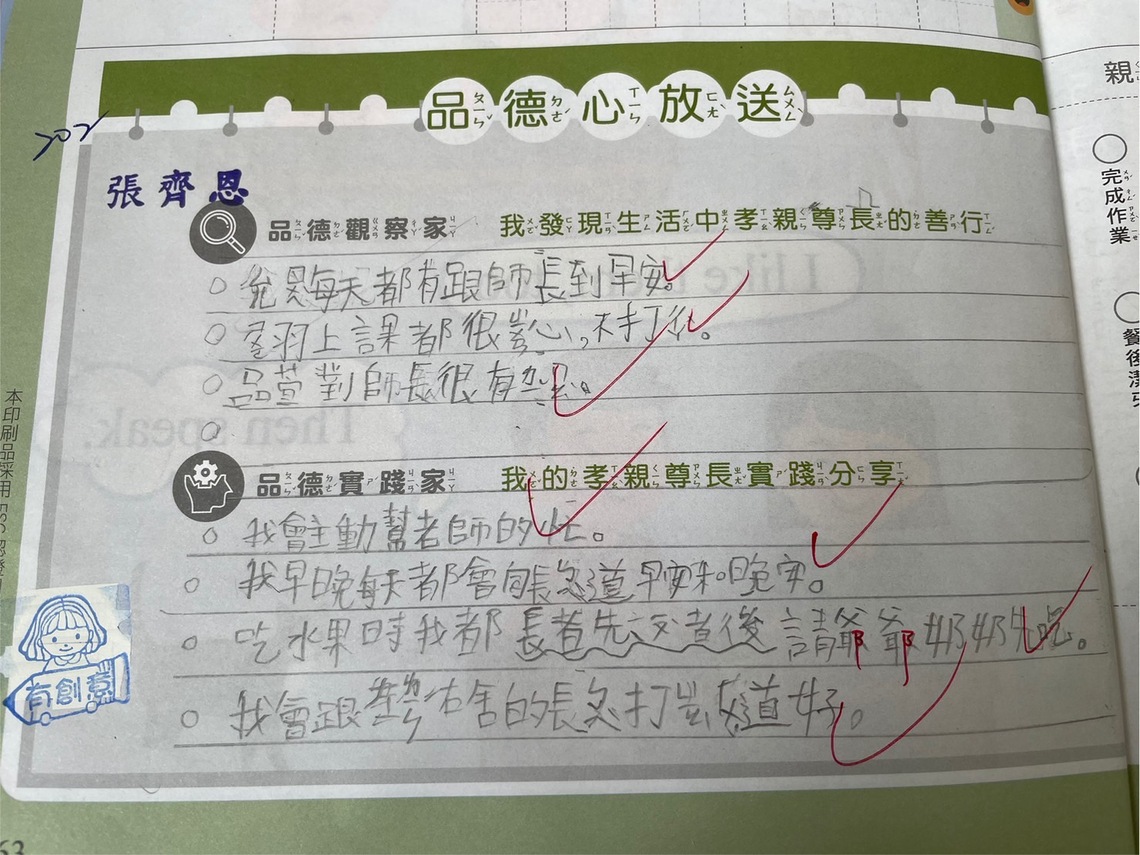 品德心放送
202
張齊恩
品德觀察家 我發現生活中孝親尊長的善行
每天都有跟師長到早安。
羽上課都很,不打
品萱對師長很有。
品德實踐家 我的孝親尊長實踐分享
我會主動幫老師的忙。
我早晚每天都會向長道早安和晚安。
吃水果時我都長者先後請爺爺奶奶先吃。
我會跟ㄌㄧㄣˊ右舍的長打道好。
有創意
本印刷品採用
親
完成作業
餐後潔牙
63
I like
Then speak.